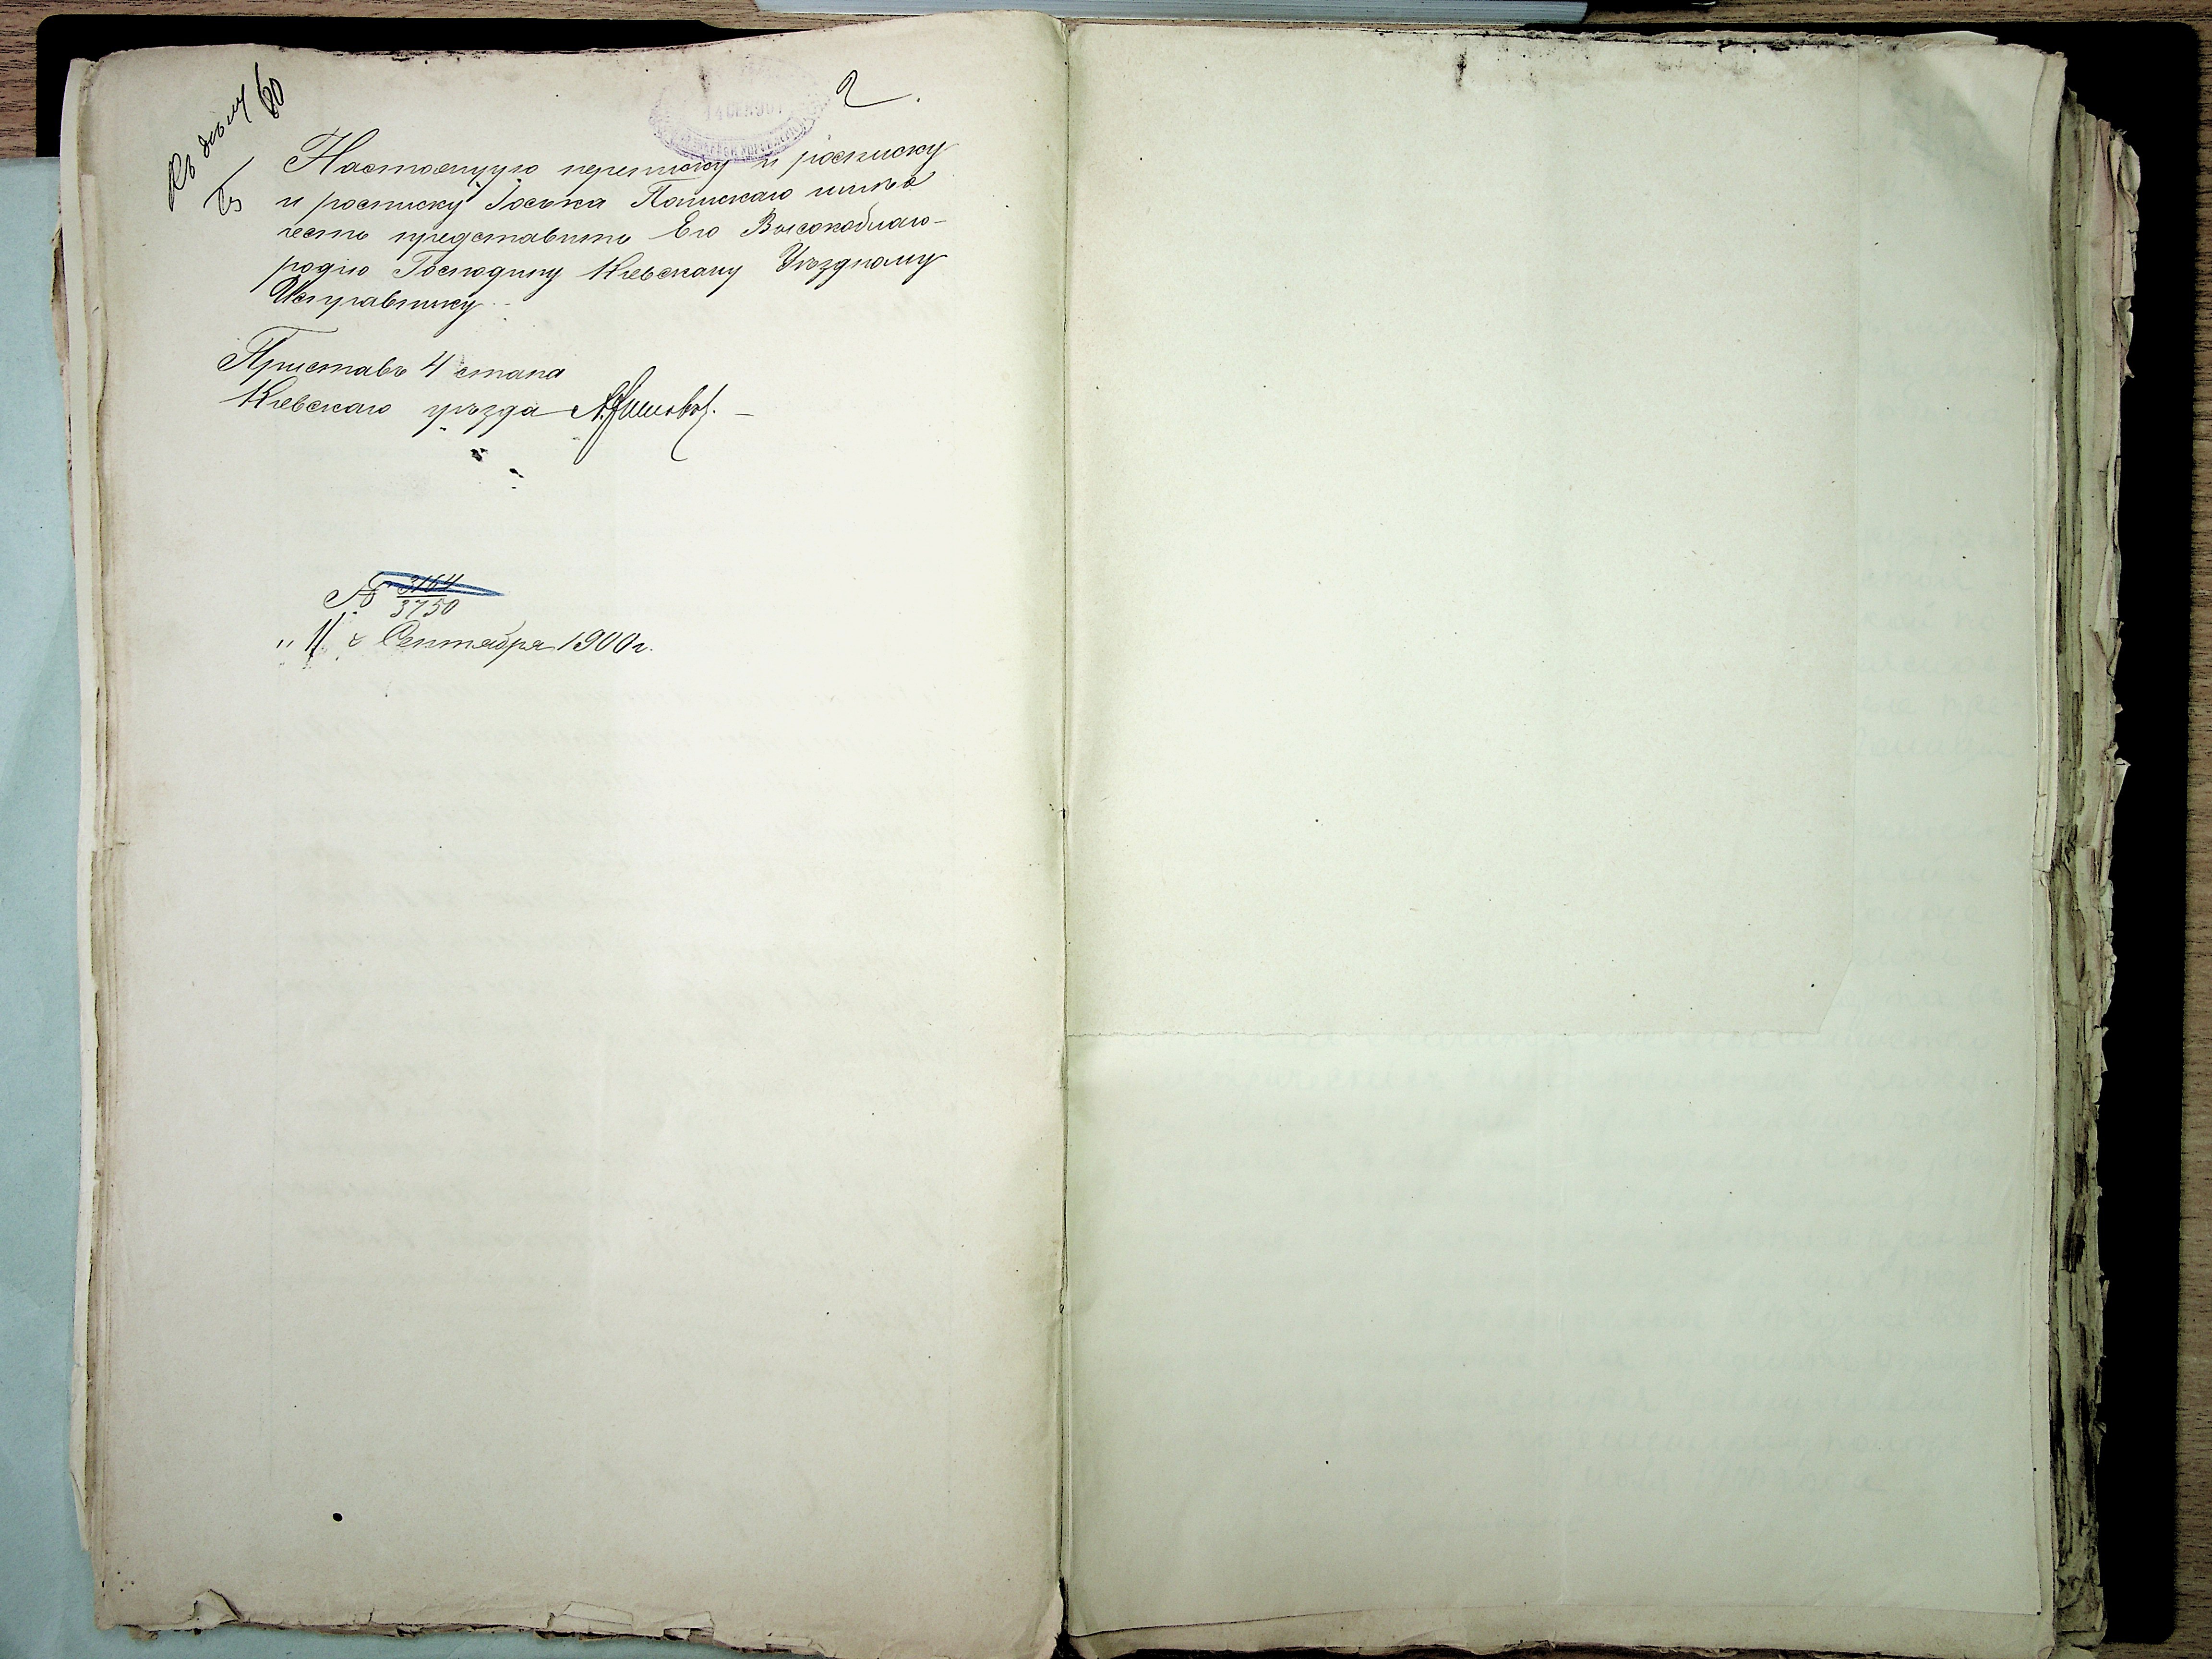 Къ дѣлу
2
Настоящую переписку и росписку
и росписку Iоська Паинскаго имѣю
честь представить Его Высокоблаго-
родiю Господину Кiевскому Уѣздному
Исправнику.
Приставъ 4 стана
Кiевскаго уѣзда
№ 3164
3750
„11" Сентября 1900 г.